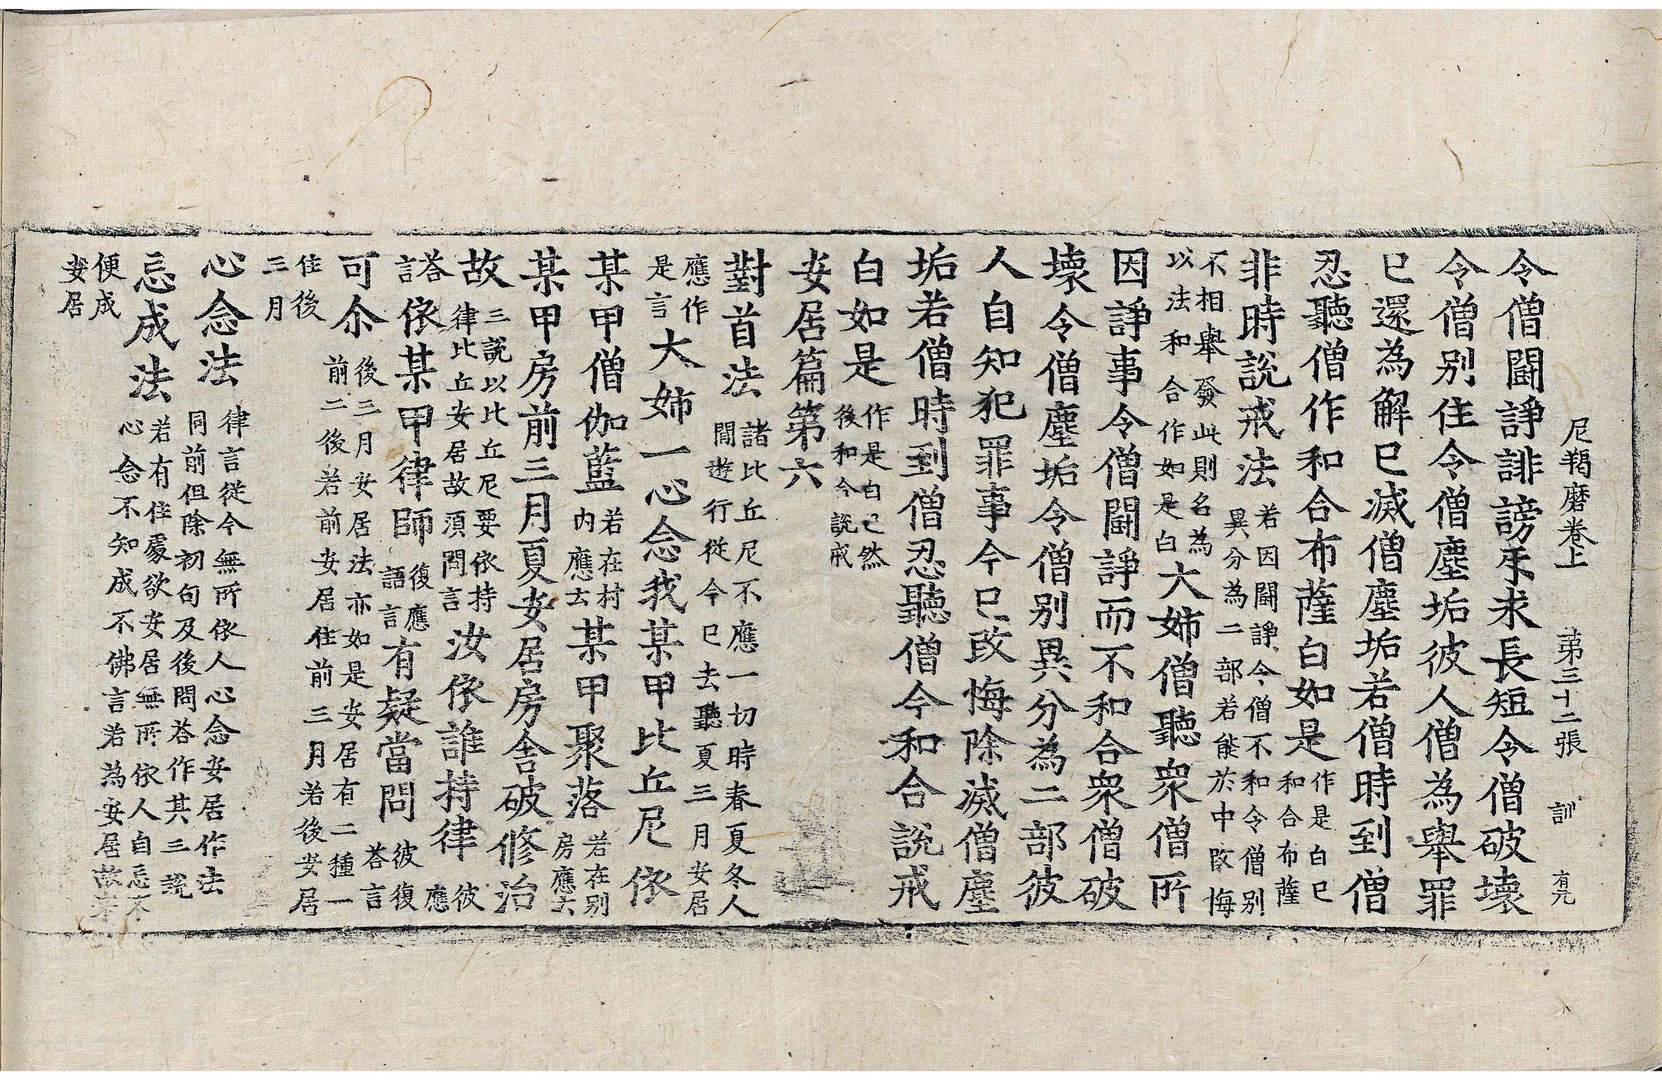 尼羯磨卷上 第三十二張 訓 有元
令僧鬬諍誹謗㸦求長短令僧破壞
令僧别住令僧塵垢彼人僧為舉罪
已還為解已滅僧塵垢若僧時到僧
忍聽僧作和合布薩白如是作是白已和合布薩
非時說戒法若因鬬諍令僧不和令僧别異分為二部若能於中改悔
不相舉發此則名為以法和合作如是白大姉僧聽衆僧所
因諍事令僧鬬諍而不和合衆僧破
壞令僧塵垢令僧别異分為二部彼
人自知犯罪事今已改悔除滅僧塵
垢若僧時到僧忍聽僧今和合說戒
白如是作是白已然後和合說戒
安居篇第六
對首法諸比丘尼不應一切時春夏冬人間遊行從今已去聽夏三月安居
應作是言大姉一心念我某甲比丘尼依
某甲僧伽藍若在村内應云某甲聚落若在别房應云
某甲房前三月夏安居房舍破修治
故三說以比丘尼要依持律比丘安居故須問言汝依誰持律彼應
荅言依某甲律師復應語言有疑當問彼復荅言
可尒後三月安居法亦如是安居有二種一前二後若前安居住前三月若後安居
住後三月
心念法律言從今無所依人心念安居作法同前但除初句及後問荅作其三說
忘成法若有住處欲安居無所依人自忘不心念不知成不佛言若為安居故來
便成安居